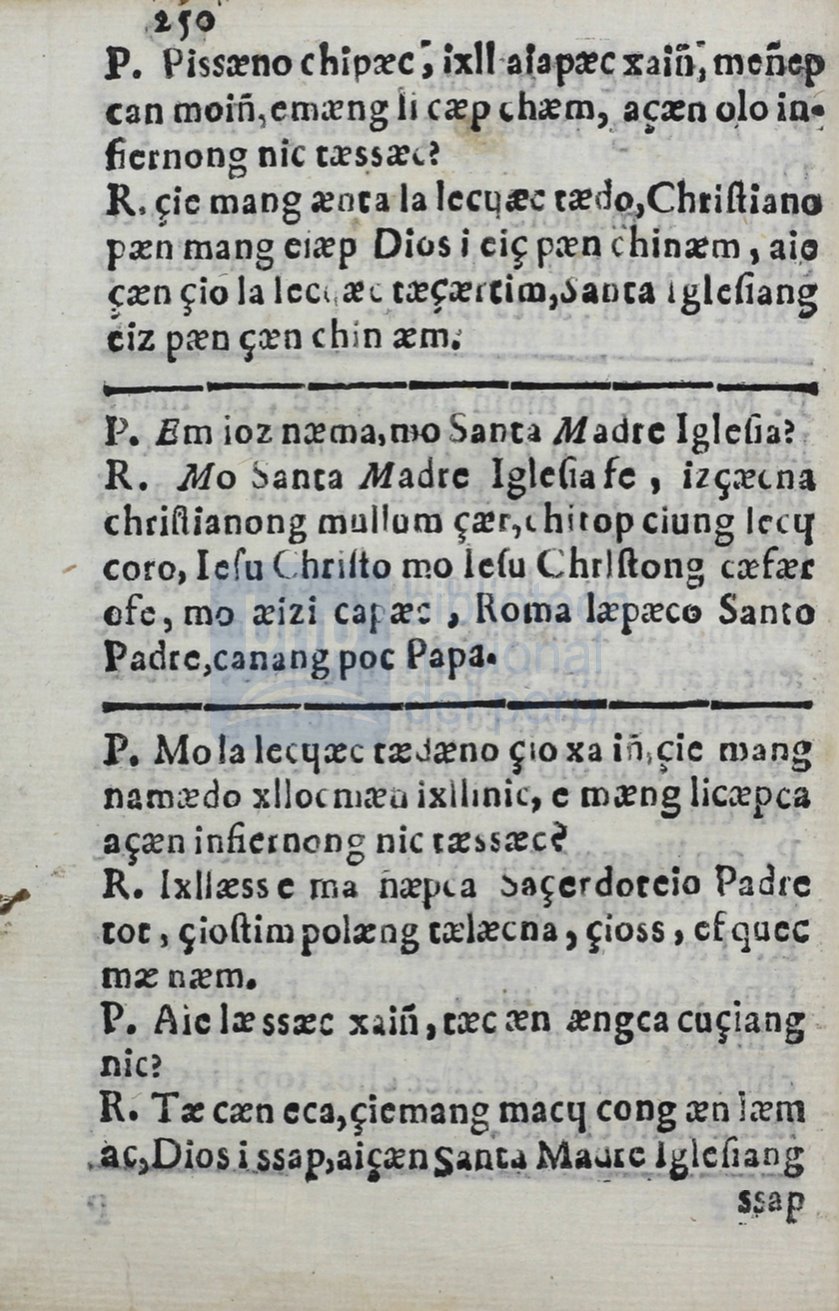 250
P. Pissæno chipæc, ixll aſapæc xaiñ, meñep
can moiñ, emæng li cæp chæm, açæn olo in-
fiernong nic tæssæc?
R. çie mang ænta la lecqæc tædo, Chriſtiano
pæn mang eiæp Dios i eiç pæn chinæm, aio
çæn çio la lecqæc tæçærtim, Santa Igleſiang
eiz pæn çæn chin æm.
P. Em ioz næma, mo Santa Madre Igleſia?
R. Mo Santa Madre Igleſia fe, izçæcna
chriſtianong mullum çær, chitop ciung lecq
coro, Ieſu Chriſto mo Ieſu Chrlſtong cæfær
ofe, mo æizi capæc, Roma læpæco Santo
Padre, canang poc Papa.
P. Mo la lecqæc tædæno çio xa iñ, çie mang
namædo xllocmæn ixllinic, e mæng licæpca
açæn infiernong nic tæssæc?
R. Ixllæss e ma ñæpca Saçerdoteio Padre
tot, çioſtim polæng tælæcna, çioss, efquec
mæ næm.
P. Aie læssæc xaiñ, tæc æn ængca cuçiang
nic?
R. Tæ cæn eca, çiemang macq cong æn læm
ac, Dios i ssap, aiçæn Santa Madre Igleſiang
ssap